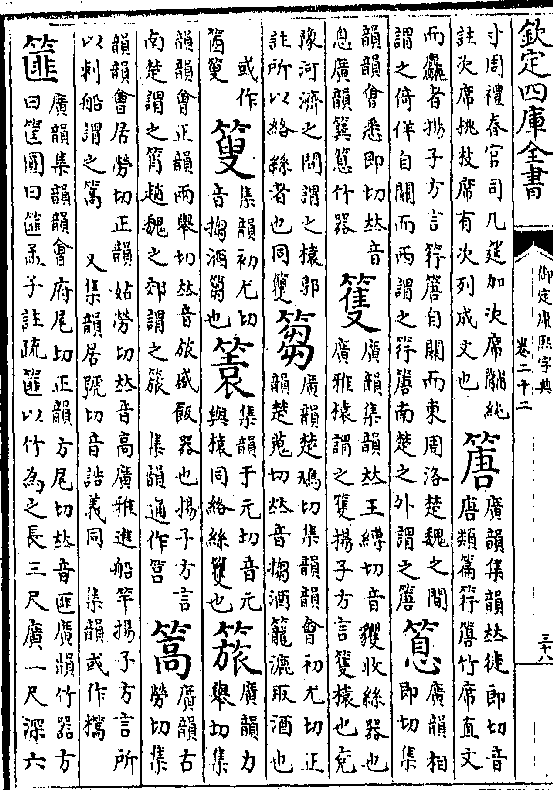 欽定四庫全書
御定康熙字典
卷二十二
三十八
寸周禮春官司几筵加次席黼純
註次席桃枝席有次列成文也
篖
廣韻集韻𠀤徒郎切音
唐類篇符篖竹席直文
而麤者揚子方言符篖自關而東周洛楚魏之間
謂之倚佯自關而西謂之符篖南楚之外謂之篖
䈡
廣韻相
即切集
韻韻會悉即切𠀤音
息廣韻簨䈡竹器
籆
廣韻集韻𠀤王縛切音
籰收絲器也
廣雅榬謂之籆揚子方言籆榬也兖
豫河濟之間謂之榬郭
註所以絡絲者也同籰
篘
廣韻楚鳩切集韻韻會初尤切正
韻楚蒐切𠀤音搊酒籠漉取酒也
或作
篘䉤
集韻初尤切
音搊酒篘也
𥰞
集韻于元切音元
與榬同絡絲籰也
䈰
廣韻力
舉切集
韻韻會正韻兩舉切𠀤音旅盛飯器也揚子方言
南楚謂之筲趙魏之郊謂之䈰 集韻通作筥
篙
廣韻古
勞切集
韻韻會居勞切正韻姑勞切𠀤音高廣雅進船竿揚子方言所
以刺船謂之篙 又集韻居號切音誥義同 集韻或作㰏
篚
廣韻集韻韻會府尾切正韻方尾切𠀤音匪廣韻竹器方
曰筐圓曰篚孟子註疏篚以竹為之長三尺廣一尺深六